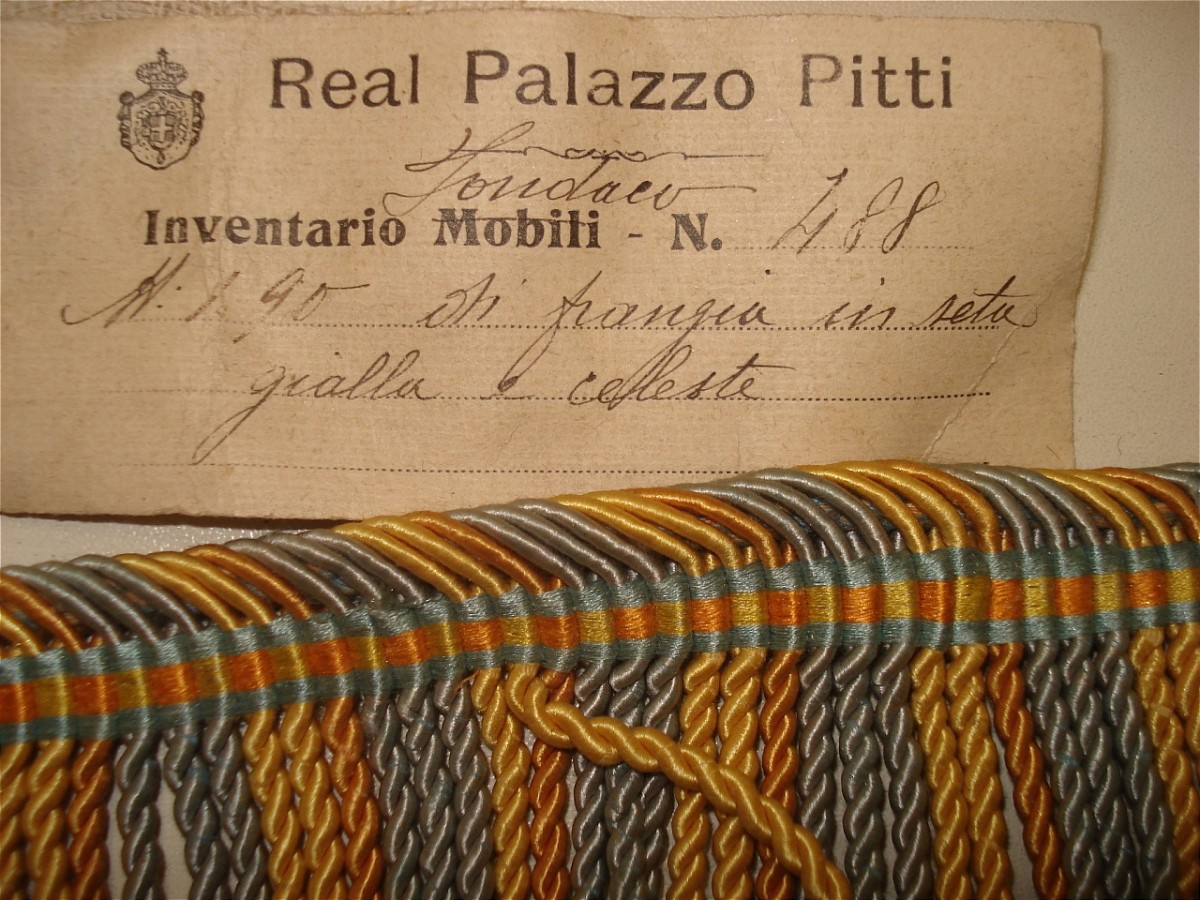 Real Palazzo Pitti
Fondaco
Inventario Mobili - N. 488
M. 1,90 di frangia in seta
gialla e celeste